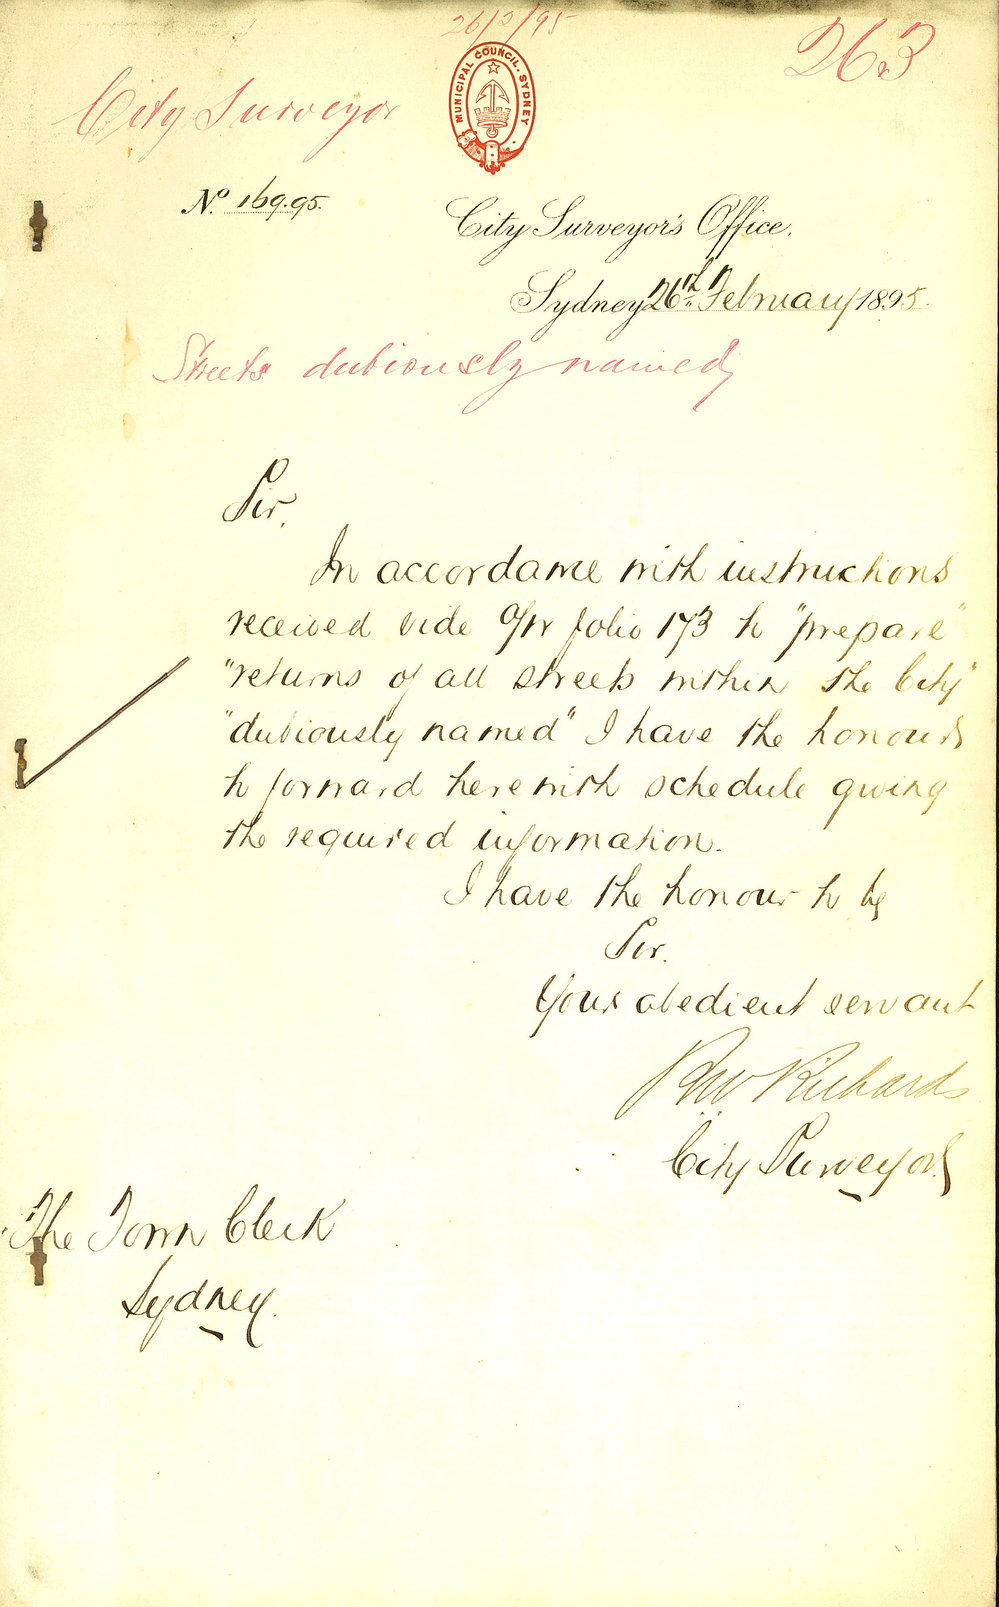 26/2/95
263
City Surveyor
MUNICIPAL COUNCIL. SYDNEY
No. 169.95.
City Surveyor's Office.
Sydney 26th February 1895.
Streets dubiously named
Sir.
In accordance with instructions
received vide folio 173 to "prepare"
"returns of all streets within the City"
"dubiously named" I have the honour
to forward herewith schedule giving
the required information.
I have the honour to be
Sir.
Your obedient servant
RW Richards
City Surveyor
The Town Clerk
Sydney.